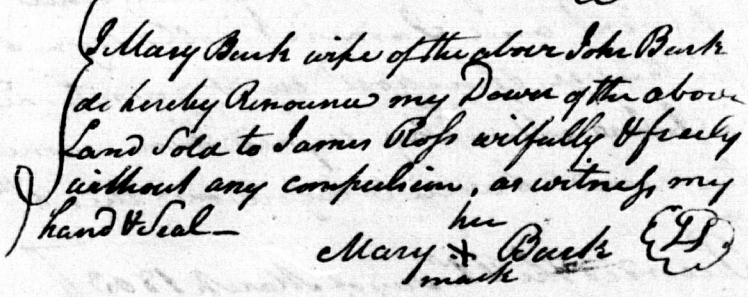 I Mary Burk wife of the above John Burk
do hereby Renounce my Dower of the above
Land Sold to James Ross wilfully & freely
without any compulsion, as witness my
hand & Seal —
her
Mary X Burk LS
mark